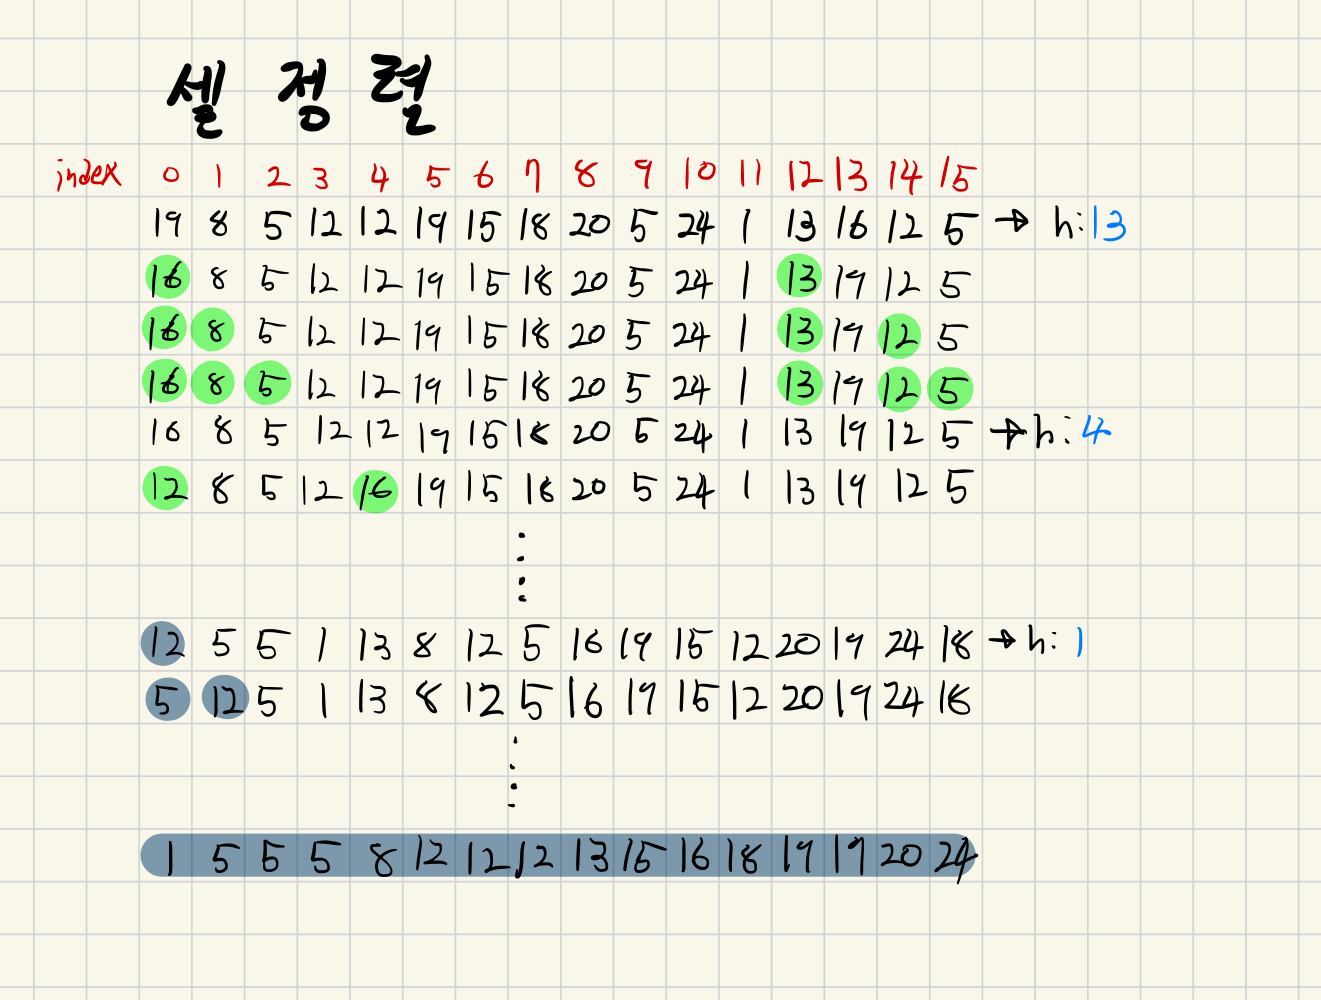 셸 정렬
index 0 1 2 3 4 5 6 7 8 9 10 11 12 13 14 15
19 8 5 12 12 19 15 18 20 5 24 1 13 16 12 5 → h:13
16 8 5 12 12 19 15 18 20 5 24 1 13 19 12 5
16 8 5 12 12 19 15 18 20 5 24 1 13 19 12 5
16 8 5 12 12 19 15 18 20 5 24 1 13 19 12 5
16 8 5 12 12 19 15 18 20 5 24 1 13 19 12 5 → h:4
12 8 5 12 16 19 15 18 20 5 24 1 13 19 12 5
12 5 5 1 13 8 12 5 16 19 15 12 20 19 24 18 → h:1
5 12 5 1 13 8 12 5 16 19 15 12 20 19 24 18
1 5 5 5 8 12 12 12 13 15 16 18 19 19 20 24